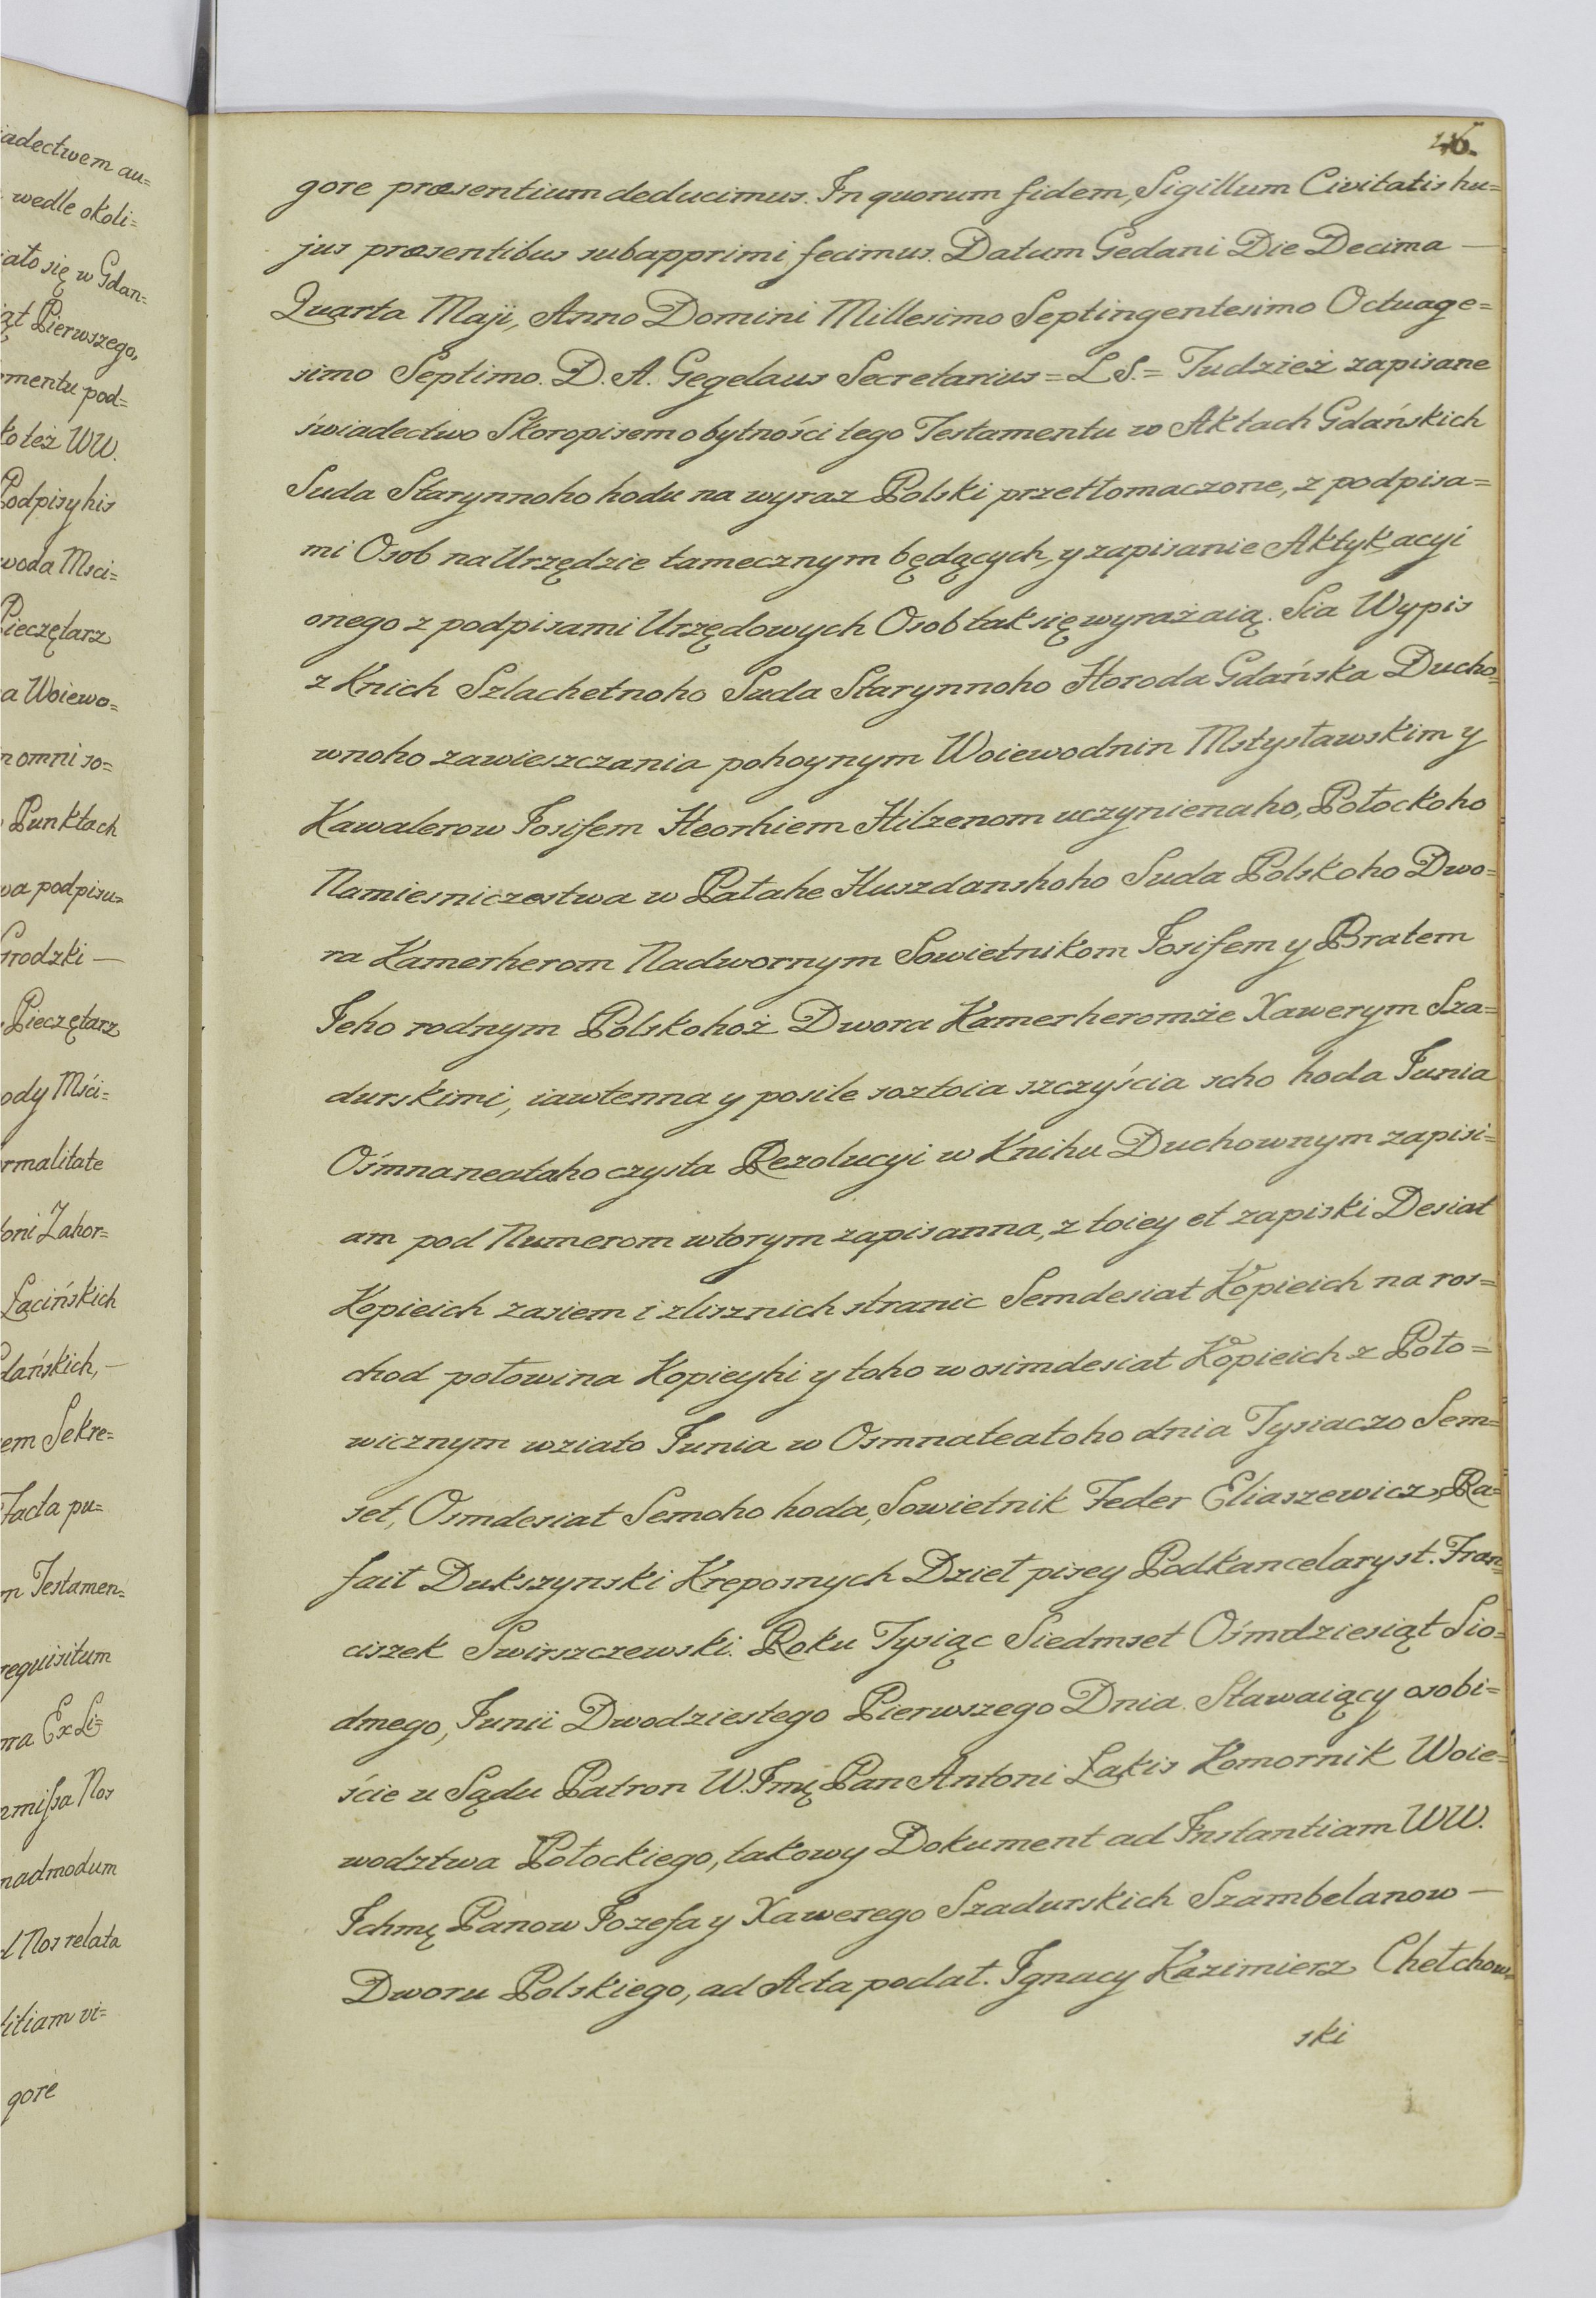 iadectwem au=
wedle okoli=
iało się w Gdan=
iąt Pierwszego,
mentu pod=
ko też WW.
Podpisy his
woda Msci=
Pieczętarz
a Woiewo=
n omni so=
Punktach
wa podpisu=
Grodzki —
Pieczętarz
ody Mści=
rmalitate
toni Zahor=
Łacińskich
Gdańskich, —
em Sekre=
Facta pu=
m Testamen=
requisitum
ma Ex Li=
missa Nos
nadmodum
d Nos relata
titiam vi=
gore
46.
gore præsentium deducimus. In quorum fidem, Sigillum Civitatis hu=
jus præsentibus subapprimi fecimus. Datum Gedani Die Decima —
Quarta Maji, Anno Domini Millesimo Septingentesimo Octuage=
simo Septimo. D. A. Gegelaus Secretarius = L S. = Tudzież zapisane
świadectwo Skoropisem o bytności tego Testamentu w Aktach Gdańskich
Suda Starynnoho hodu na wyraz Polski przetłomaczone, z podpisa=
mi Osob na Urzędzie tamecznym będących, y zapisanie Aktykacyi
onego z podpisami Urzędowych Osob tak się wyrażaią. Sia Wypis
z Knich Szlachetnoho Suda Starynnoho Horoda Gdańska Ducho=
wnoho zawieszczania pohoynym Woiewodnin Mstysławskim y
Kawalerow Iosifem Heorhiem Hilzenom uczynienaho, Połockoho
Namiesniczestwa w Patahe Huszdanshoho Suda Polskoho Dwo=
ra Kamerherom Nadwornym Sowietnikom Iosifem y Bratem
Ieho rodnym Polskohoż Dwora Kamerheromże Xawerym Sza=
durskimi, iawtenna y posile soztoia szczyścia scho hoda Iunia
Ośmnaneataho czysta Rezolucyi w Knihu Duchownym zapisi=
am pod Numerom wtorym zapisanna, z toiey et zapiski Desiat
Kopieich zasiem i zlisznich stranic Semdesiat Kopieich na ros=
chod połowina Kopieyki y toho wosimdesiat Kopieich z Poło=
wicznym wziato Iunia w Osmnateatoho dnia Tysiaczo Sem=
set, Osmdesiat Semoho hoda, Sowietnik Feder Eliaszewicz, Ra=
fait Dukszynski Kreposnych Dzieł pisey Podkancelaryst. Fran=
ciszek Swirszczewski. Roku Tysiąc Siedmset Ośmdziesiąt Sio=
dmego, Iunii Dwodziestego Pierwszego Dnia. Stawaiący osobi=
ście u Sądu Patron W. Imę Pan Antoni Łakis Komornik Woie=
wodztwa Połockiego, takowy Dokument ad Instantiam WW.
Ichmę Panow Iozefa y Xawerego Szadurskich Szambelanow —
Dworu Polskiego, ad Acta podał. Ignacy Kazimierz Chełchow=
ski